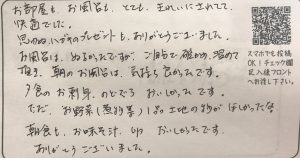 お部屋も、お風呂も、とても、きれいにされてて、
快適でした。
思わぬハガキのプレゼントも、ありがとうございました。
お風呂は、ぬるかったですが、ご自分で確かめ、温めて
頂き、朝のお風呂は、気持ち良かったです。
夕食のお刺身、のどぐろ おいしかったです。
ただ、お野菜(煮物等)1品土地の物がほしかったな
朝食も、お味噌汁、 おいしかったです。
ありがとうございました。
スマホでも投稿
OK!チェック欄
記入後フロント
へお渡し下さい。